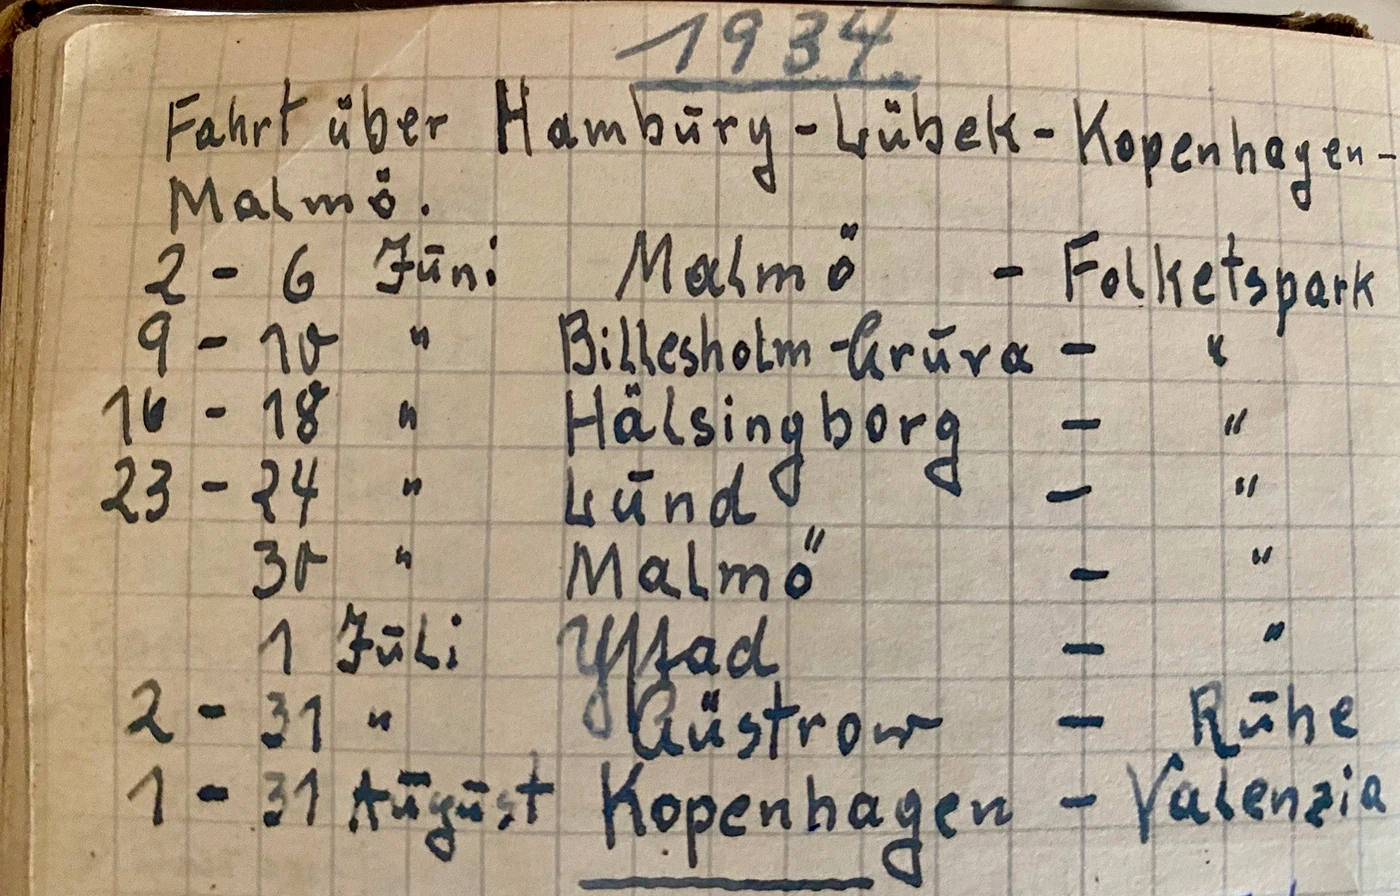 1934
Fahrt über Hamburg - Lübek - Kopenhagen -
Malmö.
2 - 6 Juni Malmö - Folketspark
9 - 10 " Billesholm - Gruva - "
16 - 18 " Hälsingborg - "
23 - 24 " Lund - "
30 " Malmö - "
1 Juli Ystad - "
2 - 31 " Güstrow - Ruhe
1 - 31 August Kopenhagen - Valenzia